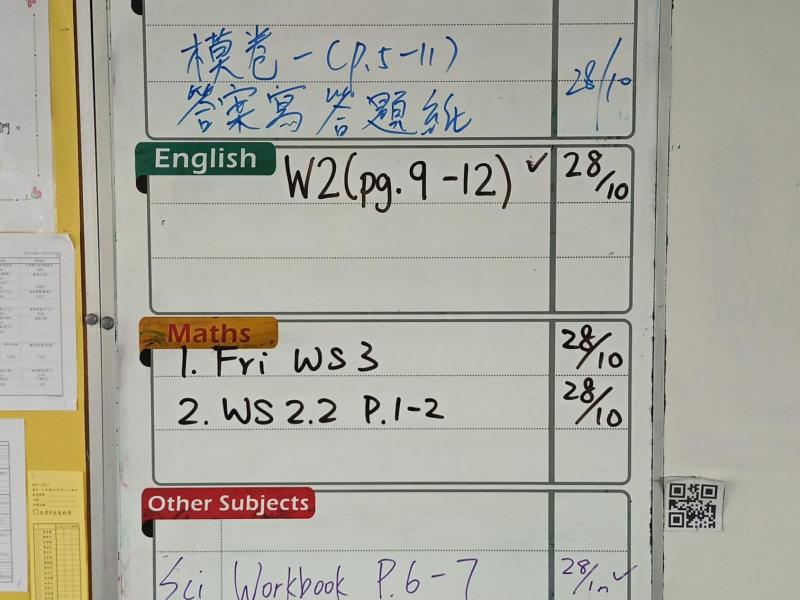 模卷一(P.5-11)
答案寫答題紙 28/10
English
W2(pg. 9-12) ✓ 28/10
Maths
1. Fri WS 3 28/10
2. WS 2.2 P.1-2 28/10
Other Subjects
Sci Workbook P.6-7 28/10 ✓
們。